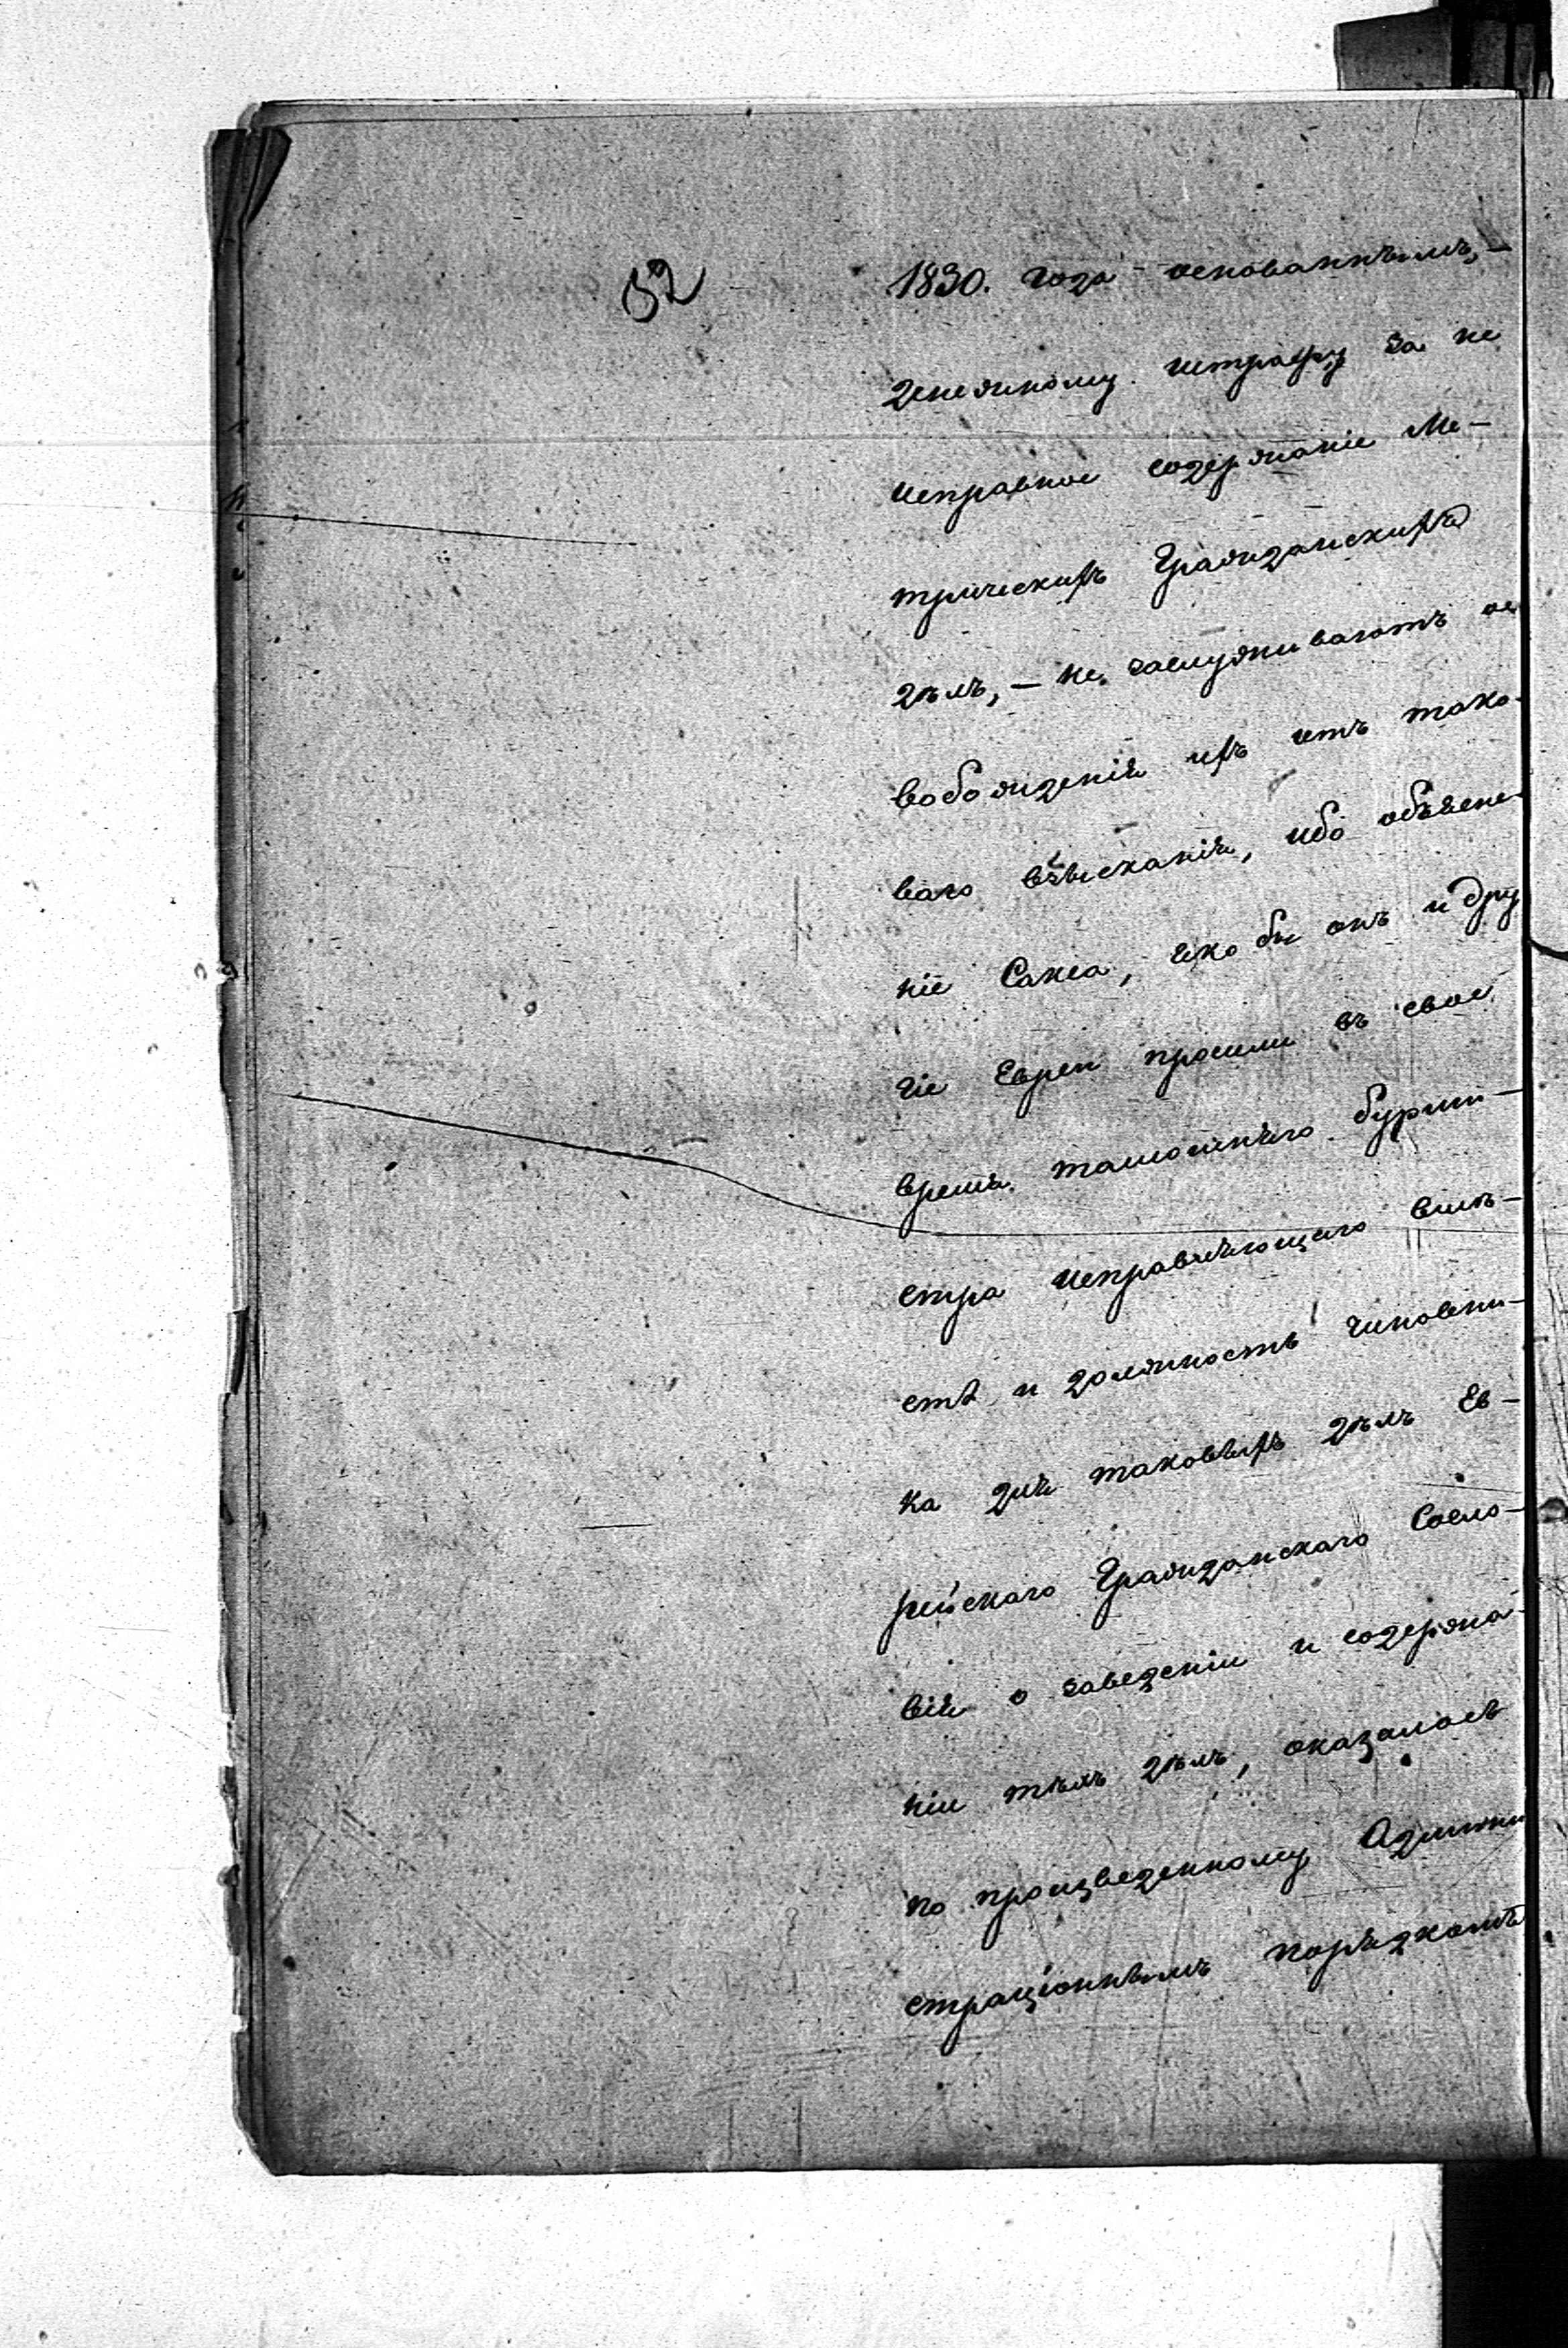 52
1830. года основаннымъ, —
денежному штрафу за не
исправное содержаніе Ме-
трическихъ Гражданскихъ
дѣлъ, — не заслуживаютъ ос
вобожденія ихъ отъ тако-
ваго взысканія, ибо объясне-
ніе Сакса, яко бы онъ и дру
гіе Евреи просили въ свое
время тамошняго бурми-
стра исправляющаго вмѣ-
стѣ и должность чиновни-
ка для таковыхъ дѣлъ Ев-
рейскаго Гражданскаго Сосло-
вія о заведеніи и содержа-
ніи тѣхъ дѣлъ, оказалось
по произведенному Админи
страціоннымъ порядкомъ